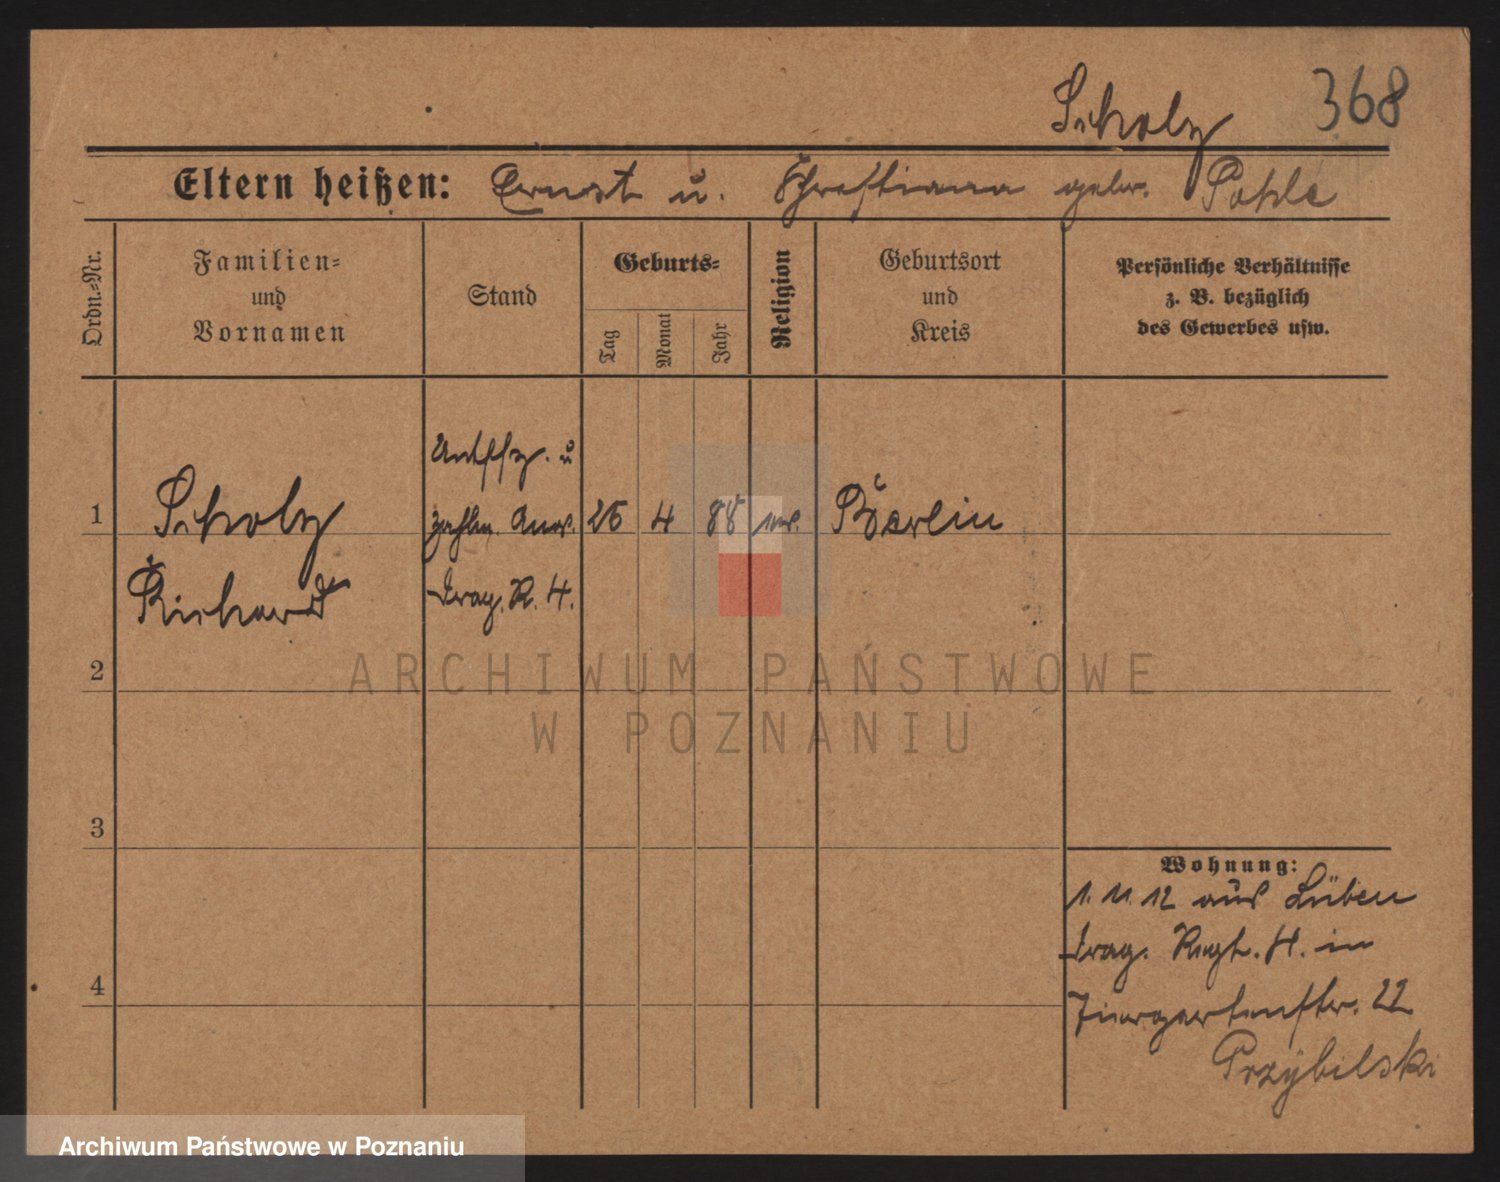 Scholz 368
Eltern heißen: Ernst u. Christiana gebr. Pohle
Ordn.-Nr.
Familien-
und
Vornamen
Stand
Geburts-
Tag
Monat
Jahr
Religion
Geburtsort
und
Kreis
Persönliche Verhältnisse
z. B. bezüglich
des Gewerbes usw.
1
Scholz
Richard
Untffz. u
Zahlm. Anw.
Drag. R. 4.
26 4 88 ev. Berlin
2
3
4
Wohnung:
1. 11. 12 aus Lüben
Drag. Regt. 4. in
Tiergartenstr. 22
Przybilski
ARCHIWUM PAŃSTWOWE
W POZNANIU
Archiwum Państwowe w Poznaniu